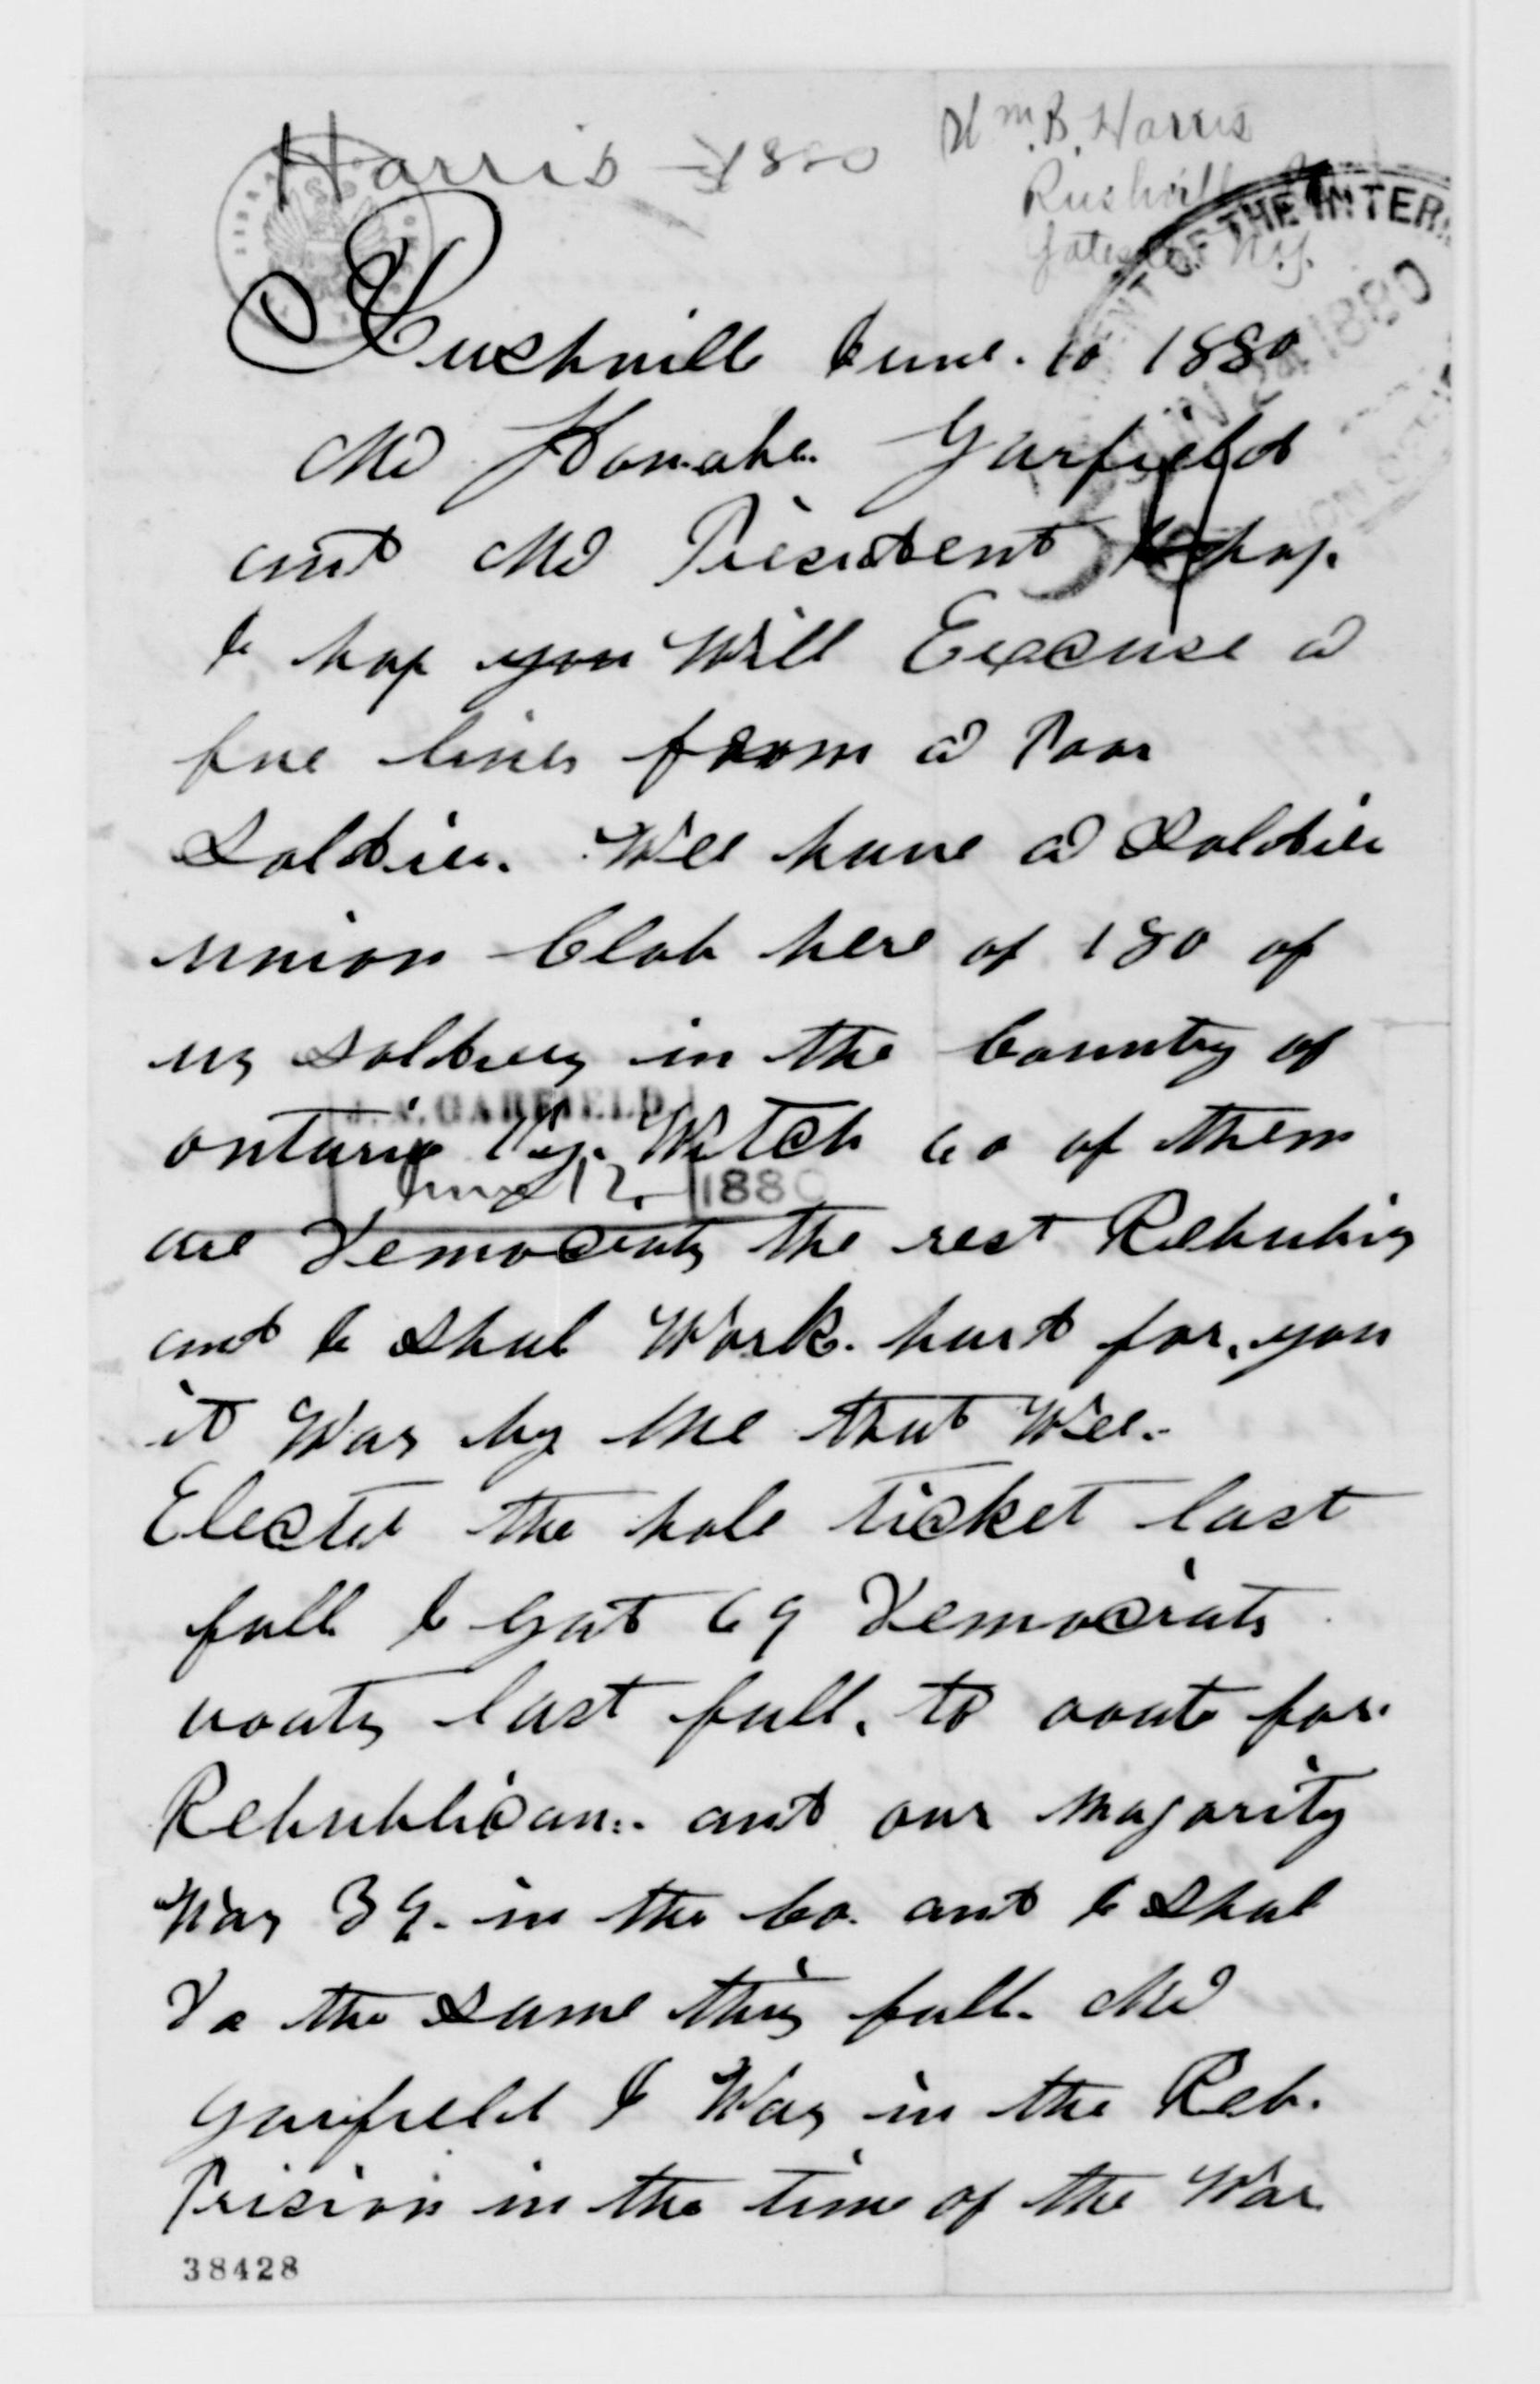 Harris 1880
Wm. B. Harris
Rushvill
Yates Co N.Y.
OF THE INTER
1880
Rushvill June. 10 1880
Mr Honable. Garfield
and Mr President I hop.
I hop you Will Excuse a
fue lines from a Poor
Soldier. Wee have a Soldier
union Club here of 180 of
us soldiers in the County of
ontario N.y. Witch 60 of them
J. A. GARFIELD
June 12 1880
are Democrats the rest Rebubins
and I Shal Work. hard for. you
it Was by Me that Wee.
Elected the hole ticket last
fall I Gat 69 Democrats
voats last fall. to voat for.
Rebublican. and our Majority
Was 39. in the Co. and I Shal
Do the Same this fall. Mr
Garfield I Was in the Reb.
Prision in the time of the War
38428